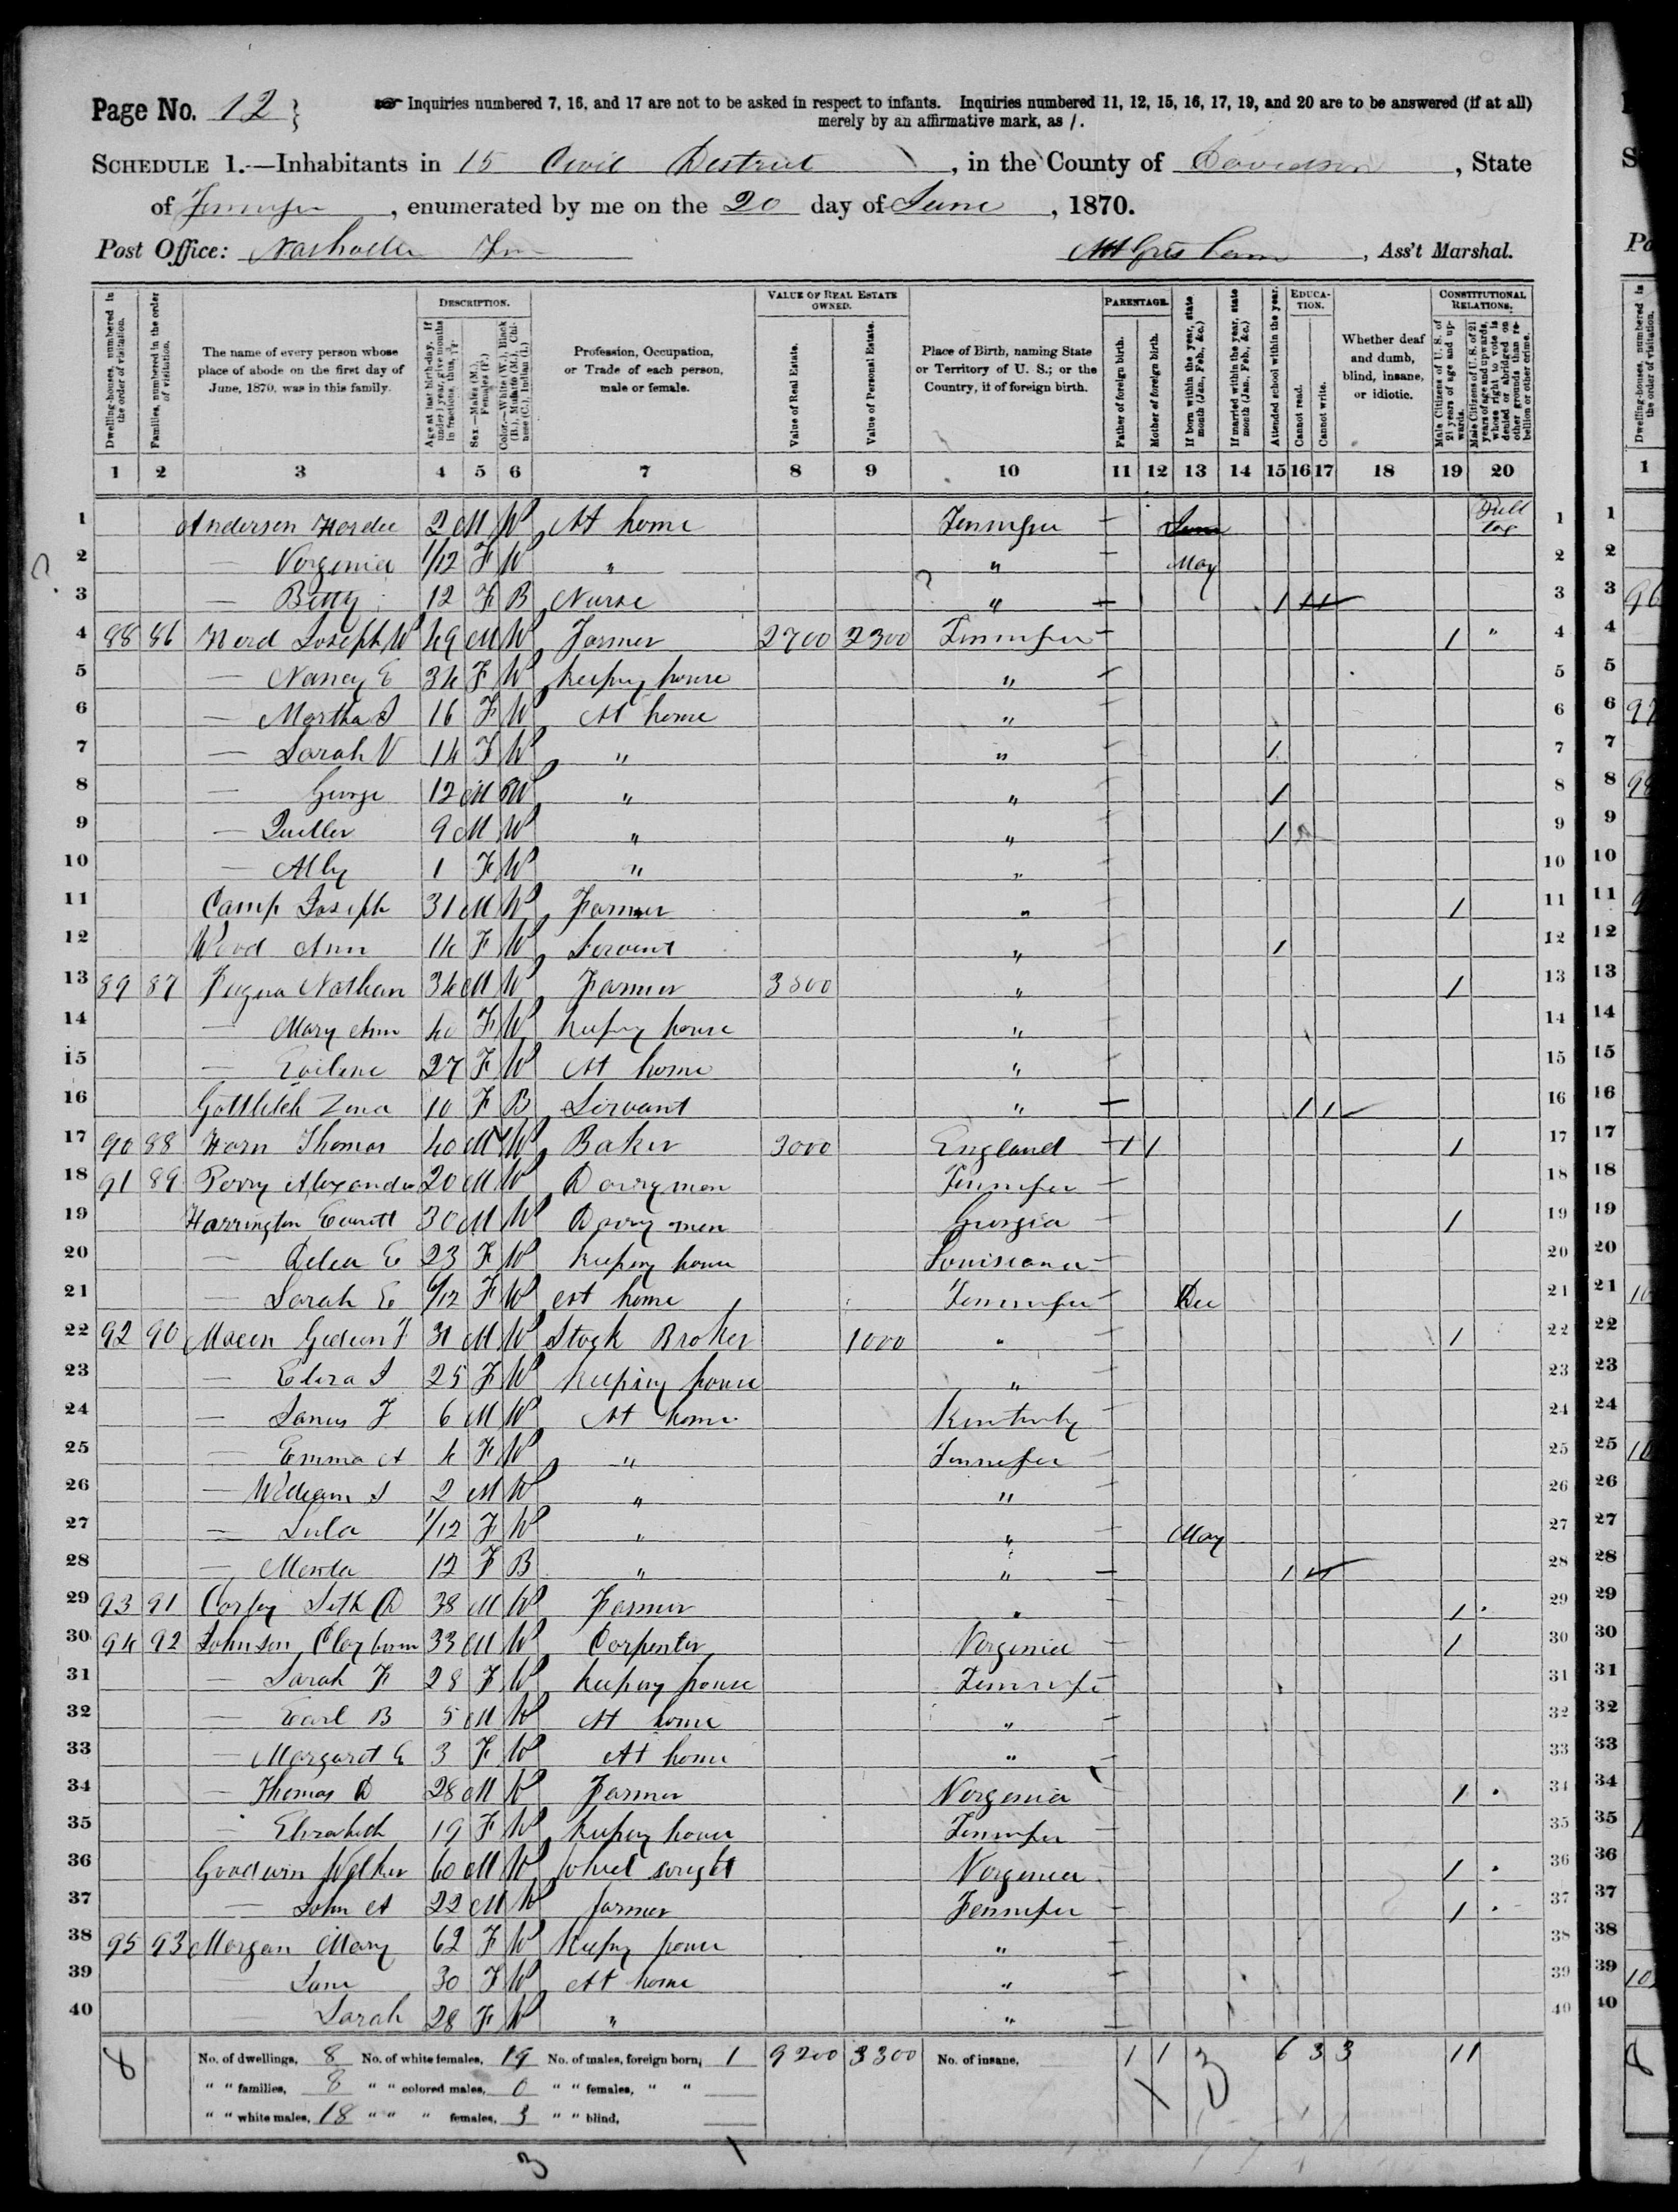 Page No. 12 } Inquiries numbered 7, 16, and 17 are not to be asked in respect to infants. Inquiries numbered 11, 12, 15, 16, 17, 19, and 20 are to be answered (if at all)
merely by an affirmative mark, as /.
SCHEDULE 1.—Inhabitants in 15 Civil District, in the County of Davidson, State
of Tennessee, enumerated by me on the 20 day of June, 1870.
Post Office: Nashville Ten , Ass't Marshal.
DESCRIPTION. VALUE OF REAL ESTATE OWNED. PARENTAGE. EDUCATION. CONSTITUTIONAL RELATIONS.
Dwelling-houses, numbered in the order of visitation.
Families, numbered in the order of visitation.
The name of every person whose place of abode on the first day of June, 1870, was in this family.
Age at last birth-day. If under 1 year, give months in fractions, thus, 3/12.
Sex.—Males (M.), Females (F.)
Color.—White (W.), Black (B.), Mulatto (M.), Chinese (C.), Indian (I.)
Profession, Occupation, or Trade of each person, male or female.
Value of Real Estate.
Value of Personal Estate.
Place of Birth, naming State or Territory of U. S.; or the Country, if of foreign birth.
Father of foreign birth.
Mother of foreign birth.
If born within the year, state month (Jan., Feb., &c.)
If married within the year, state month (Jan., Feb., &c.)
Attended school within the year.
Cannot read.
Cannot write.
Whether deaf and dumb, blind, insane, or idiotic.
Male Citizens of U. S. of 21 years of age and upwards.
Male Citizens of U. S. of 21 years of age and upwards, whose right to vote is denied or abridged on other grounds than rebellion or other crime.
1 2 3 4 5 6 7 8 9 10 11 12 13 14 15 16 17 18 19 20
1 Anderson 2 M W At home Tennessee June tax 1
2 — Virginia 1/12 F W " " May 2
3 — Betty 12 F B Nurse " 1 1 1 3
4 88 86 Joseph W 49 M W Farmer 2700 2300 Tennessee 1 " 4
5 — Nancy E 34 F W Keeping house " 5
6 — Martha J 16 F W At home " 6
7 — Sarah V 14 F W " " 1 7
8 — George 12 M W " " 1 8
9 — 9 M W " " 1 9
10 — 1 F W " " 10
11 Camp Joseph 31 M W Farmer " 1 11
12 Ann 14 F W Servant " 1 12
13 89 87 Nathan 34 M W Farmer 3500 " 1 13
14 — Mary Ann 40 F W Keeping house " 14
15 — Eviline 27 F W At home " 15
16 10 F B Servant " 1 1 16
17 90 88 Horn Thomas 40 M W Baker 3000 England 1 1 1 17
18 91 89 Perry Alexander 20 M W Dairyman Tennessee 18
19 Harrington Everett 30 M W Dairy man Georgia 1 19
20 — Delia E 23 F W Keeping house Louisiana 20
21 — Sarah E 6/12 F W At home Tennessee Dec 21
22 92 90 Macon Gideon F 31 M W Stock Broker 1000 " 1 22
23 — Eliza J 25 F W Keeping house " 23
24 — James F 6 M W At home Kentucky 24
25 — Emma A 4 F W " Tennessee 25
26 — William J 2 M W " " 26
27 — Lula 1/12 F W " " May 27
28 — 12 F B " " 1 1 1 28
29 93 91 Seth D 38 M W Farmer " 1 29
30 94 92 Johnson Clayborn 33 M W Carpenter Virginia 1 30
31 — Sarah F 28 F W Keeping house Tennessee 31
32 — Earl B 5 M W At home " 32
33 — Margaret E 3 F W At home " 33
34 — Thomas D 28 M W Farmer Virginia 1 34
35 — Elizabeth 19 F W Keeping house Tennessee 35
36 Goodwin Walker 60 M W Wheel wright Virginia 1 36
37 — John A 22 M W farmer Tennessee 1 37
38 95 93 Morgan Mary 62 F W Keeping house " 38
39 — Jane 30 F W At home " 39
40 — Sarah 28 F W " " 40
8 No. of dwellings, 8 No. of white females, 19 No. of males, foreign born, 1 9200 3300 No. of insane, 1 1 3 6 3 3 11
" " families, 8 " " colored males, 0 " " females, " "
" " white males, 18 " " " females, 3 " " blind,
3 1